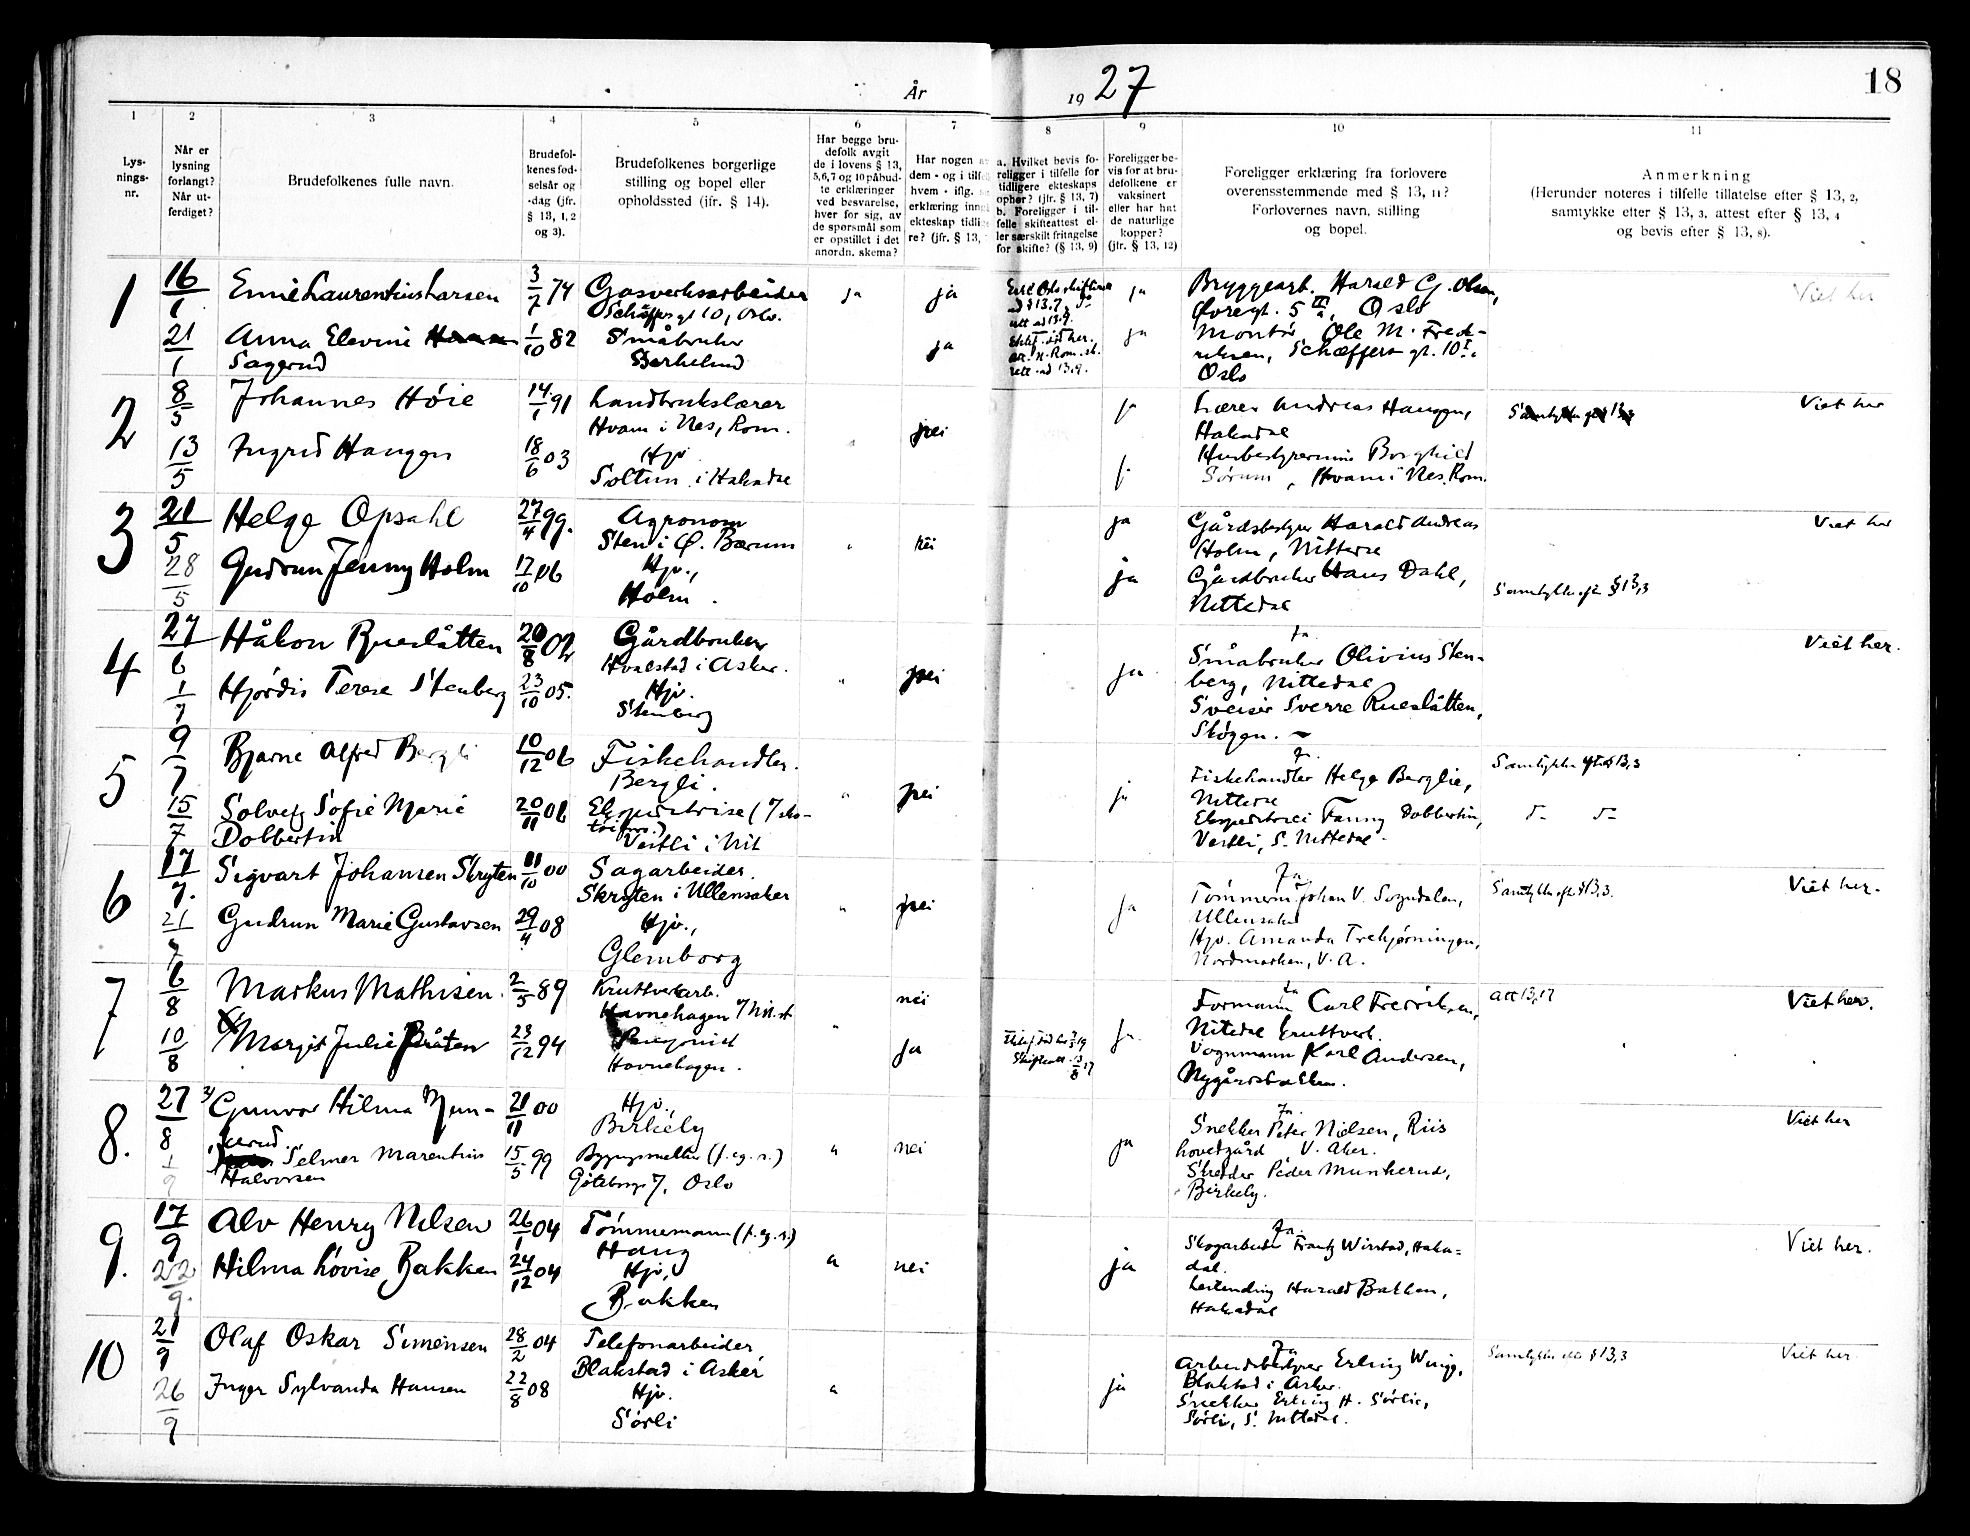 År 1927
18
1
2
3
4
5
6
7
8
9
10
11
Lys-
nings-
nr.
Når er
lysning
forlangt?
Når ut-
ferdiget?
Brudefolkenes fulle navn.
Brudefol-
kenes fød-
selsår og
-dag (jfr.
§ 13, 1, 2
og 3).
Brudefolkenes borgerlige
stilling og bopel eller
opholdssted (ifr. § 14).
Har begge bru-
defolk avgit
de i lovens § 13,
5,6,7 og 10 påbud-
te erklæringer
ved besvarelse,
hver for sig, av
de spørsmål som
er opstillet i det
anordn. skema?
Har nogen a
dem - og i tilfe
hvem - iflg.
erklæring inng
ekteskap tidli
re? (jfr. § 13,
a. Hvilket bevis fo-
religger i tilfelle for
tidligere ekteskaps
ophør? (jfr. § 13, 7)
b. Foreligger i til-
felle skifteattest el-
ler særskilt fritagelse
for skifte? (§ 13, 9)
Foreligger be-
vis for at bru-
defolkene er
vaksinert
eller har hat
de naturlige
kopper?
(jfr. § 13, 12)
Foreligger erklæring fra forlovere
overensstemmende med § 13, 11?
Forlovernes navn, stilling
og bopel.
Anmerkning
(Herunder noteres i tilfelle tillatelse efter § 13, 2,
samtykke efter § 13, 3, attest efter § 13, 4
og bevis efter § 13, 8).
1
16/1
Emil Laurentius Larsen
3/7 74
Gasverksarbeider
Schäffersgt 10, Oslo.
ja
ja
ja
Bryggearb. Harald G. Olsen,
Øvregt. 5 III, Oslo
Viet her
21/1
Anna Elevine
Sagerud
1/10 82
Småbruker
Berkelund
ja
ja
Montør Ole M. Fred-
riksen, Schæffers gt. 10 I.
Oslo
2
8/5
Johannes Høie
14/1 91
Landbrukslærer
Hvam i Nes, Rom.
nei
j.
Lærer Andreas Haugen,
Hakadal
Viet her
13/5
Ingrid Haugen
18/6 03
Hjv.
Soltun i Hakadal
j.
Husbestyrerinne Borghild
Sørum, Hvam i Nes, Rom.
3
21/5
Helge Opsahl
27/4 99.
Agronom
Sten i Ø. Bærum
nei
ja
Gårdsbestyrer Harald Andreas
Holm, Nittedal
Viet her
28/5
Gudrun Jenny Holm
17/10 06
Hjv.,
Holm.
ja
Gårdbruker Hans Dahl,
Nittedal
Samtykke eft. § 13,3
4
27/6
Håkon Rueslåtten
20/8 02
Gårdbruker
Hvalstad i Asker.
"
nei
ja
Ja
Småbruker Olivius Sten-
berg, Nittedal
Viet her.
1/7
Hjørdis Terese Stenberg
23/10 05.
Hjv.
Stenberg
Sveiser Sverre Rueslåtten,
Skøyen.
5
9/7
Bjarne Alfred Bergli
10/12 06
Fiskehandler.
Bergli.
"
nei
ja
Ja.
Fiskehandler Helge Berglie,
Nittedal
Samtykke eft. § 13,3
15/7
Solveig Sofie Marie
Dobbertin
20/11 06
Vestli i Nit
Fanny Dobbertin,
Vestli, S. Nittedal.
6
17/7.
Sigvart Johansen Skryten
11/10 00
Sagarbeider.
Skryten i Ullensaker
"
nei
ja
Ja.
Tømmerm. Johan V. Sogndalen,
Ullensaker
Samtykke eft § 13,3.
Viet her.
21/7
Gudrun Marie Gustavsen
29/4 08
Hjv.,
Glemborg
Hjv. Amanda Trehjørningen,
Nordmarken, V. A.
7
6/8
Markus Mathisen.
2/5 89
Kruttverkarb.
Havnehagen
nei
Ja
Formann Carl Fredriksen,
Nitedal Kruttverk.
Att 13,17
Viet her.
10/8
Margit Julie Bråten
23/12 94
Havnehagen.
"
ja
ja
Vognmann Karl Andersen,
Nygårdsbakken.
8.
27/8
Gunvor Hilma Mun-
kerud.
21/11 00
Hjv.,
Birkely
"
nei
ja
Ja.
Snekker Peter Nielsen, Riis
hovedgård V. Aker.
Viet her
1/9
Selmer Marentius
Halvorsen
15/5 99
Göteborgt. 7, Oslo
Skredder Peder Munkerud,
Birkely.
9.
17/9
Alv Henry Nilsen
26/1 04
Tømmermann (f. eg. r.)
Haug
"
nei
ja
Ja
Skogarbeider Frantz Wirstad, Haka-
dal.
Viet her.
22/9.
Hilma Lovise Bakken
24/12 04
Hjv,
Bakken
Harald Bakken,
Hakadal
10
21/9
Olaf Oskar Simensen
28/2 04
Telefonarbeider
Blakstad i Asker
"
ja
Ja
Arbeidsbestyrer Erling Wingg,
Blakstad i Asker.
Samtykke efter § 13,3
Viet her
26/9
Inger Sylvanda Hansen
22/8 08
Hjv.
Sørli
Snekker Erling H. Sørlie,
Sørli, S. Nittedal.